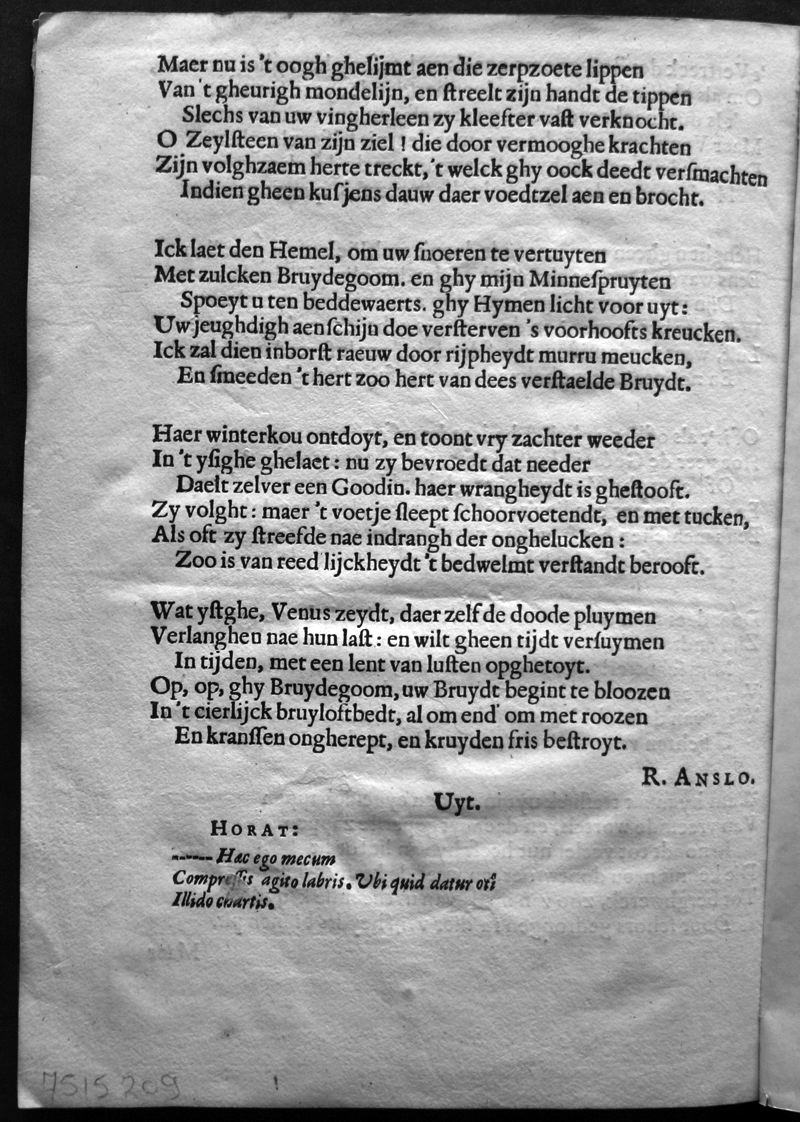 Maer nu is 't oogh ghelijmt aen die zerpzoete lippen
Van 't gheurigh mondelijn, en ſtreelt zijn handt de tippen
Slechs van uw vingherleen zy kleefter vaſt verknocht.
O Zeylſteen van zijn ziel! die door vermooghe krachten
Zijn volghzaem herte treckt, 't welck ghy oock deedt verſmachten
Indien gheen kuſjens dauw daer voedtzel aen en brocht.
Ick laet den Hemel, om uw ſnoeren te vertuyten
Met zulcken Bruydegoom. en ghy mijn Minneſpruyten
Spoeyt u ten beddewaerts. ghy Hymen licht voor uyt:
Uw jeughdigh aenſchijn doe verſterven 's voorhoofts kreucken.
Ick zal dien inborſt raeuw door rijpheydt murru meucken,
En ſmeeden 't hert zoo hert van dees verſtaelde Bruydt.
Haer winterkou ontdoyt, en toont vry zachter weeder
In 't yſighe ghelaet: nu zy bevroedt dat needer
Daelt zelver een Goodin. haer wrangheydt is gheſtooft.
Zy volght: maer 't voetje ſleept ſchoorvoetendt, en met tucken,
Als oft zy ſtreefde nae indrangh der onghelucken:
Zoo is van reed'lijckheydt 't bedwelmt verſtandt berooft.
Wat yſtghe, Venus zeydt, daer zelf de doode pluymen
Verlanghen nae hun laſt: en wilt gheen tijdt verſuymen
In tijden, met een lent van luſten opghetoyt.
Op, op, ghy Bruydegoom, uw Bruydt begint te bloozen
In 't cierlijck bruyloftbedt, al om end' om met roozen
En kranſſen ongherept, en kruyden fris beſtroyt.
R. ANSLO.
Uyt.
HORAT:
------ Hac ego mecum
Compreſſis agito labris. Ubi quid datur otî
Illido chartis.
7515 209